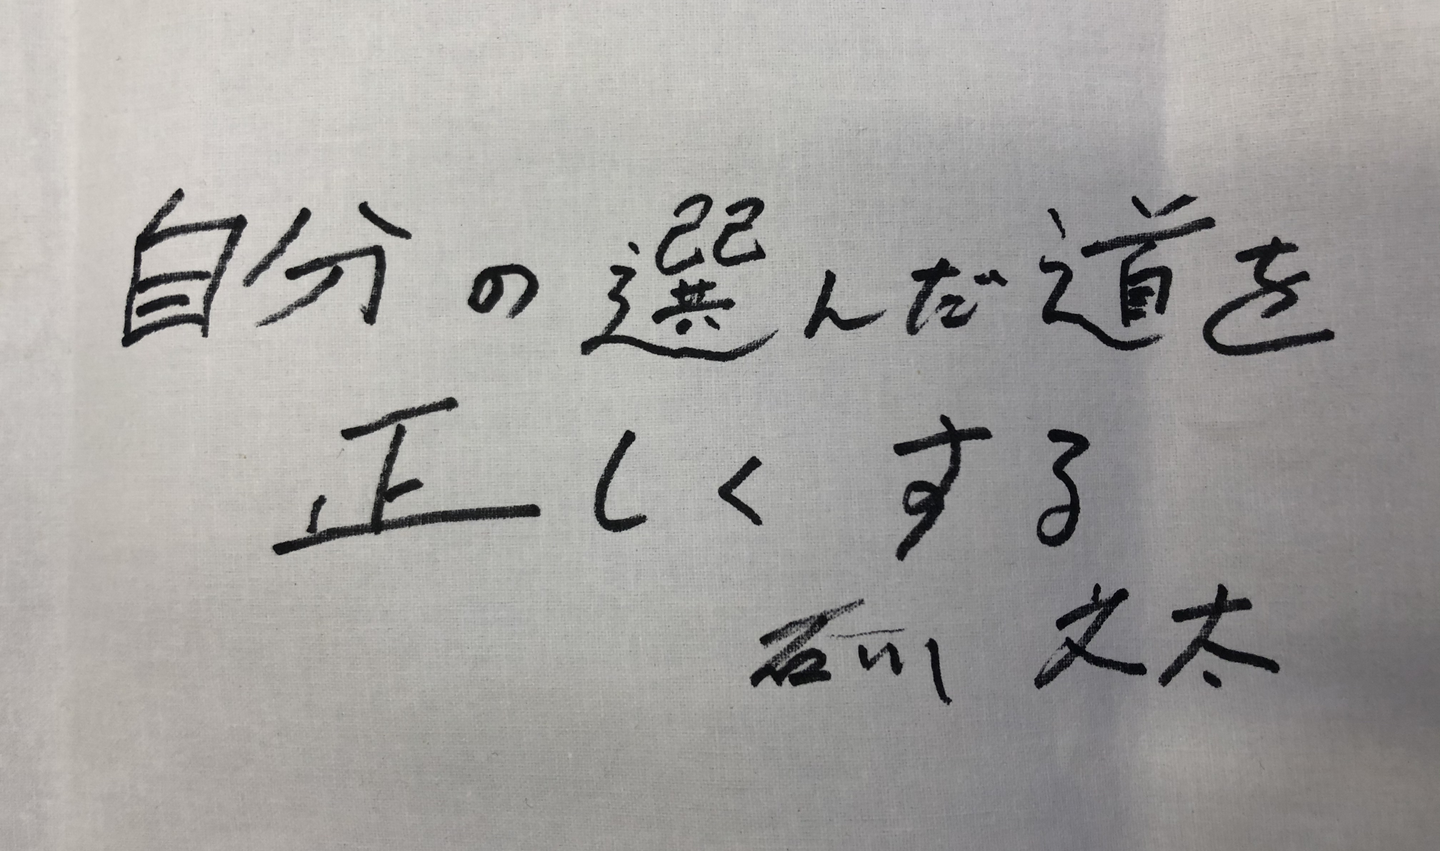 自分の選んだ道を
正しくする
石川 文太